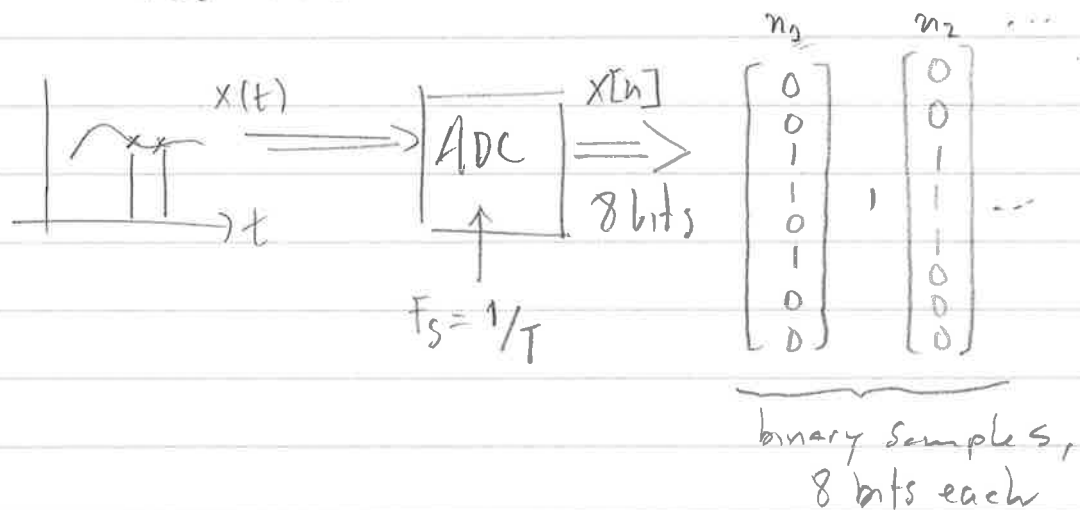 x(t)
t
ADC
F_S = 1/T
x[n]
8 bits
n_1 n_2 ...
[0 0 1 1 0 1 0 0] , [0 0 1 1 1 0 0 0] ...
binary samples,
8 bits each